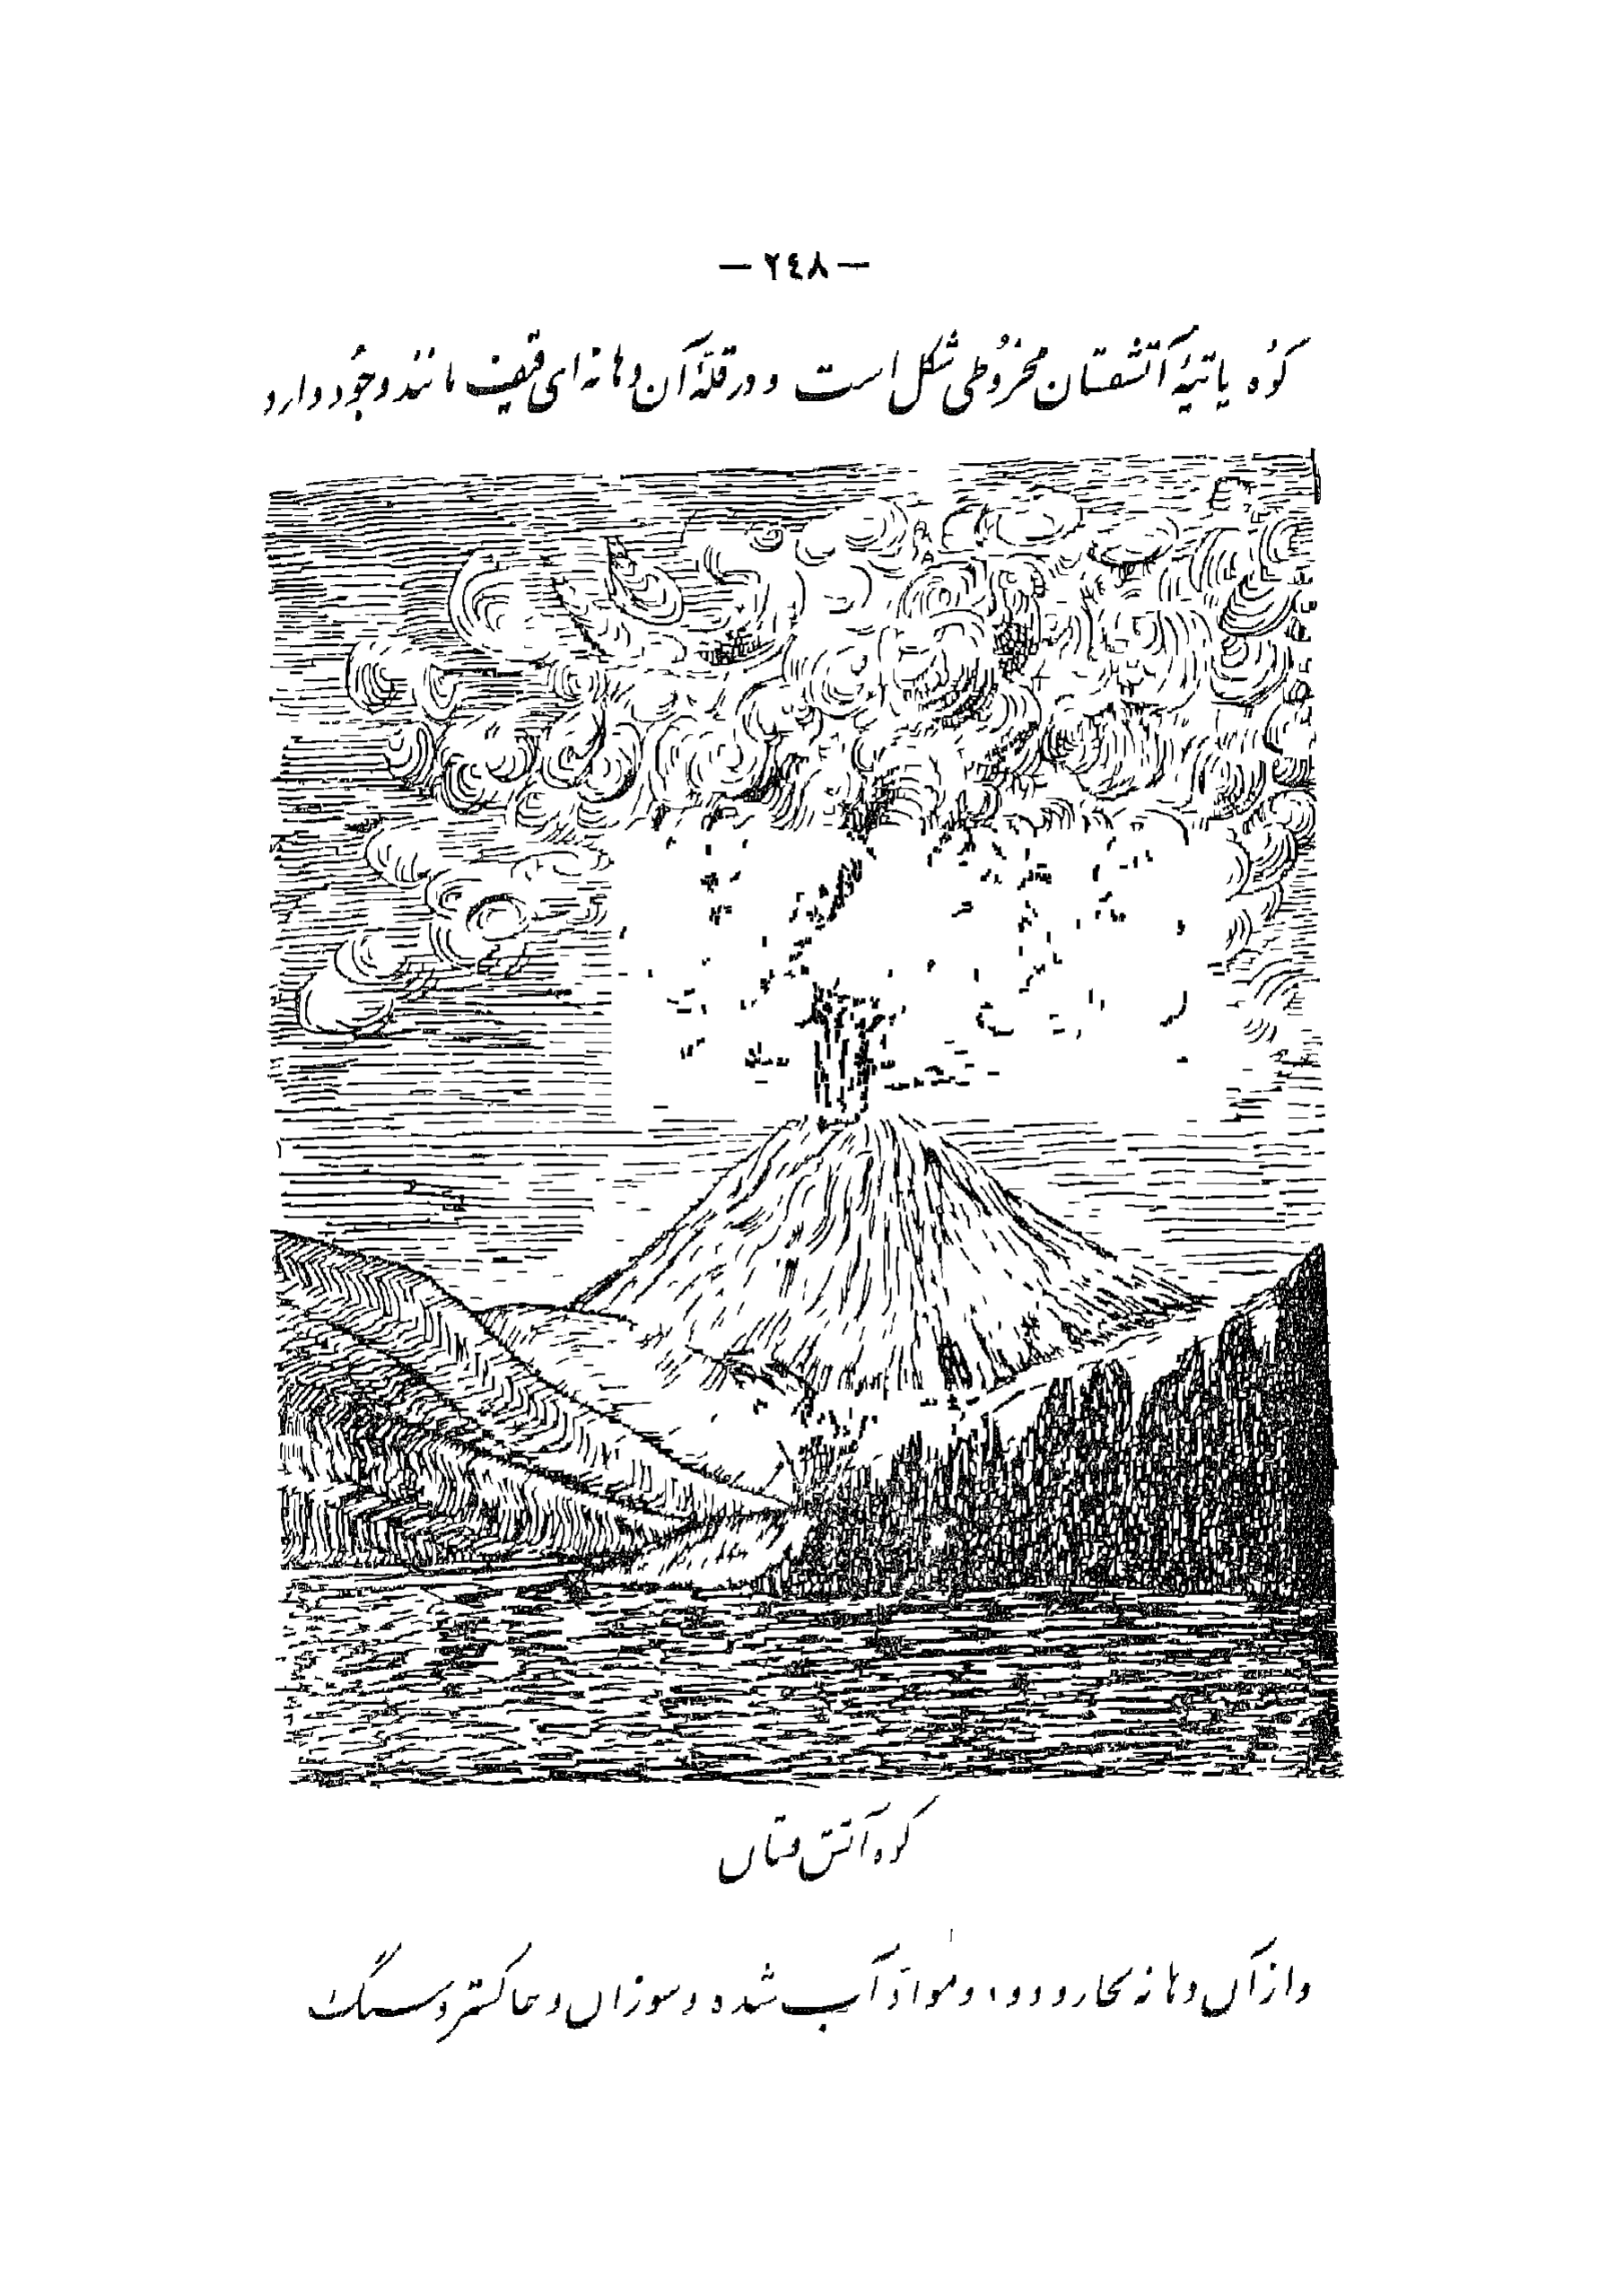 — ٢٤٨ —
کوه یا تپهٔ آتشفشان مخروطی شکل است و در قلّهٔ آن دهانه‌ای قیف مانند وجود دارد
کوه آتش فشان
و از آن دهانه بخار و دود، و موادّ آب شده و سوزان و خاکستر و سنگ